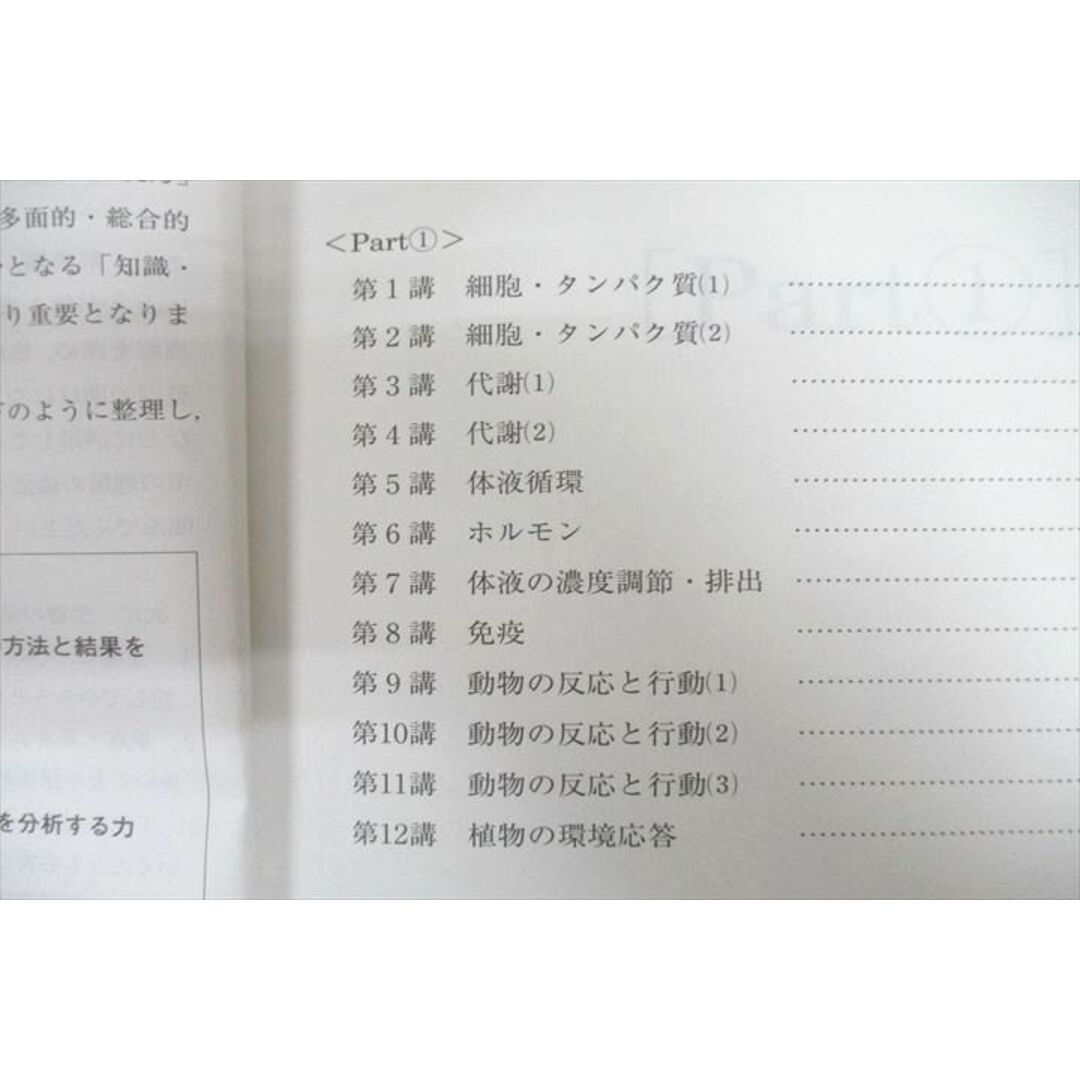 多面的・総合的
となる「知識・
り重要となりま
のように整理し,
方法と結果を
を分析する力
<Part①>
第1講 細胞・タンパク質(1) ……………
第2講 細胞・タンパク質(2) ……………
第3講 代謝(1) ……………
第4講 代謝(2) ……………
第5講 体液循環 ……………
第6講 ホルモン ……………
第7講 体液の濃度調節・排出 ……………
第8講 免疫 ……………
第9講 動物の反応と行動(1) ……………
第10講 動物の反応と行動(2) ……………
第11講 動物の反応と行動(3) ……………
第12講 植物の環境応答 ……………